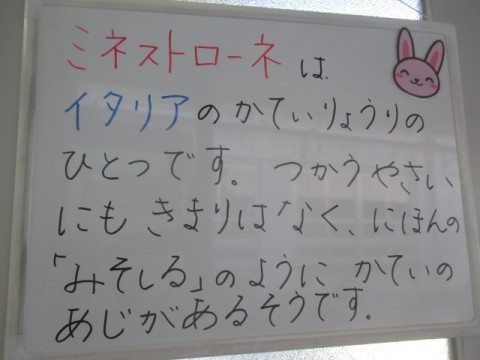 ミネストローネは
イタリアのかていりょうりの
ひとつです。つかうやさい
にもきまりはなく、にほんの
「みそしる」のようにかていの
あじがあるそうです.